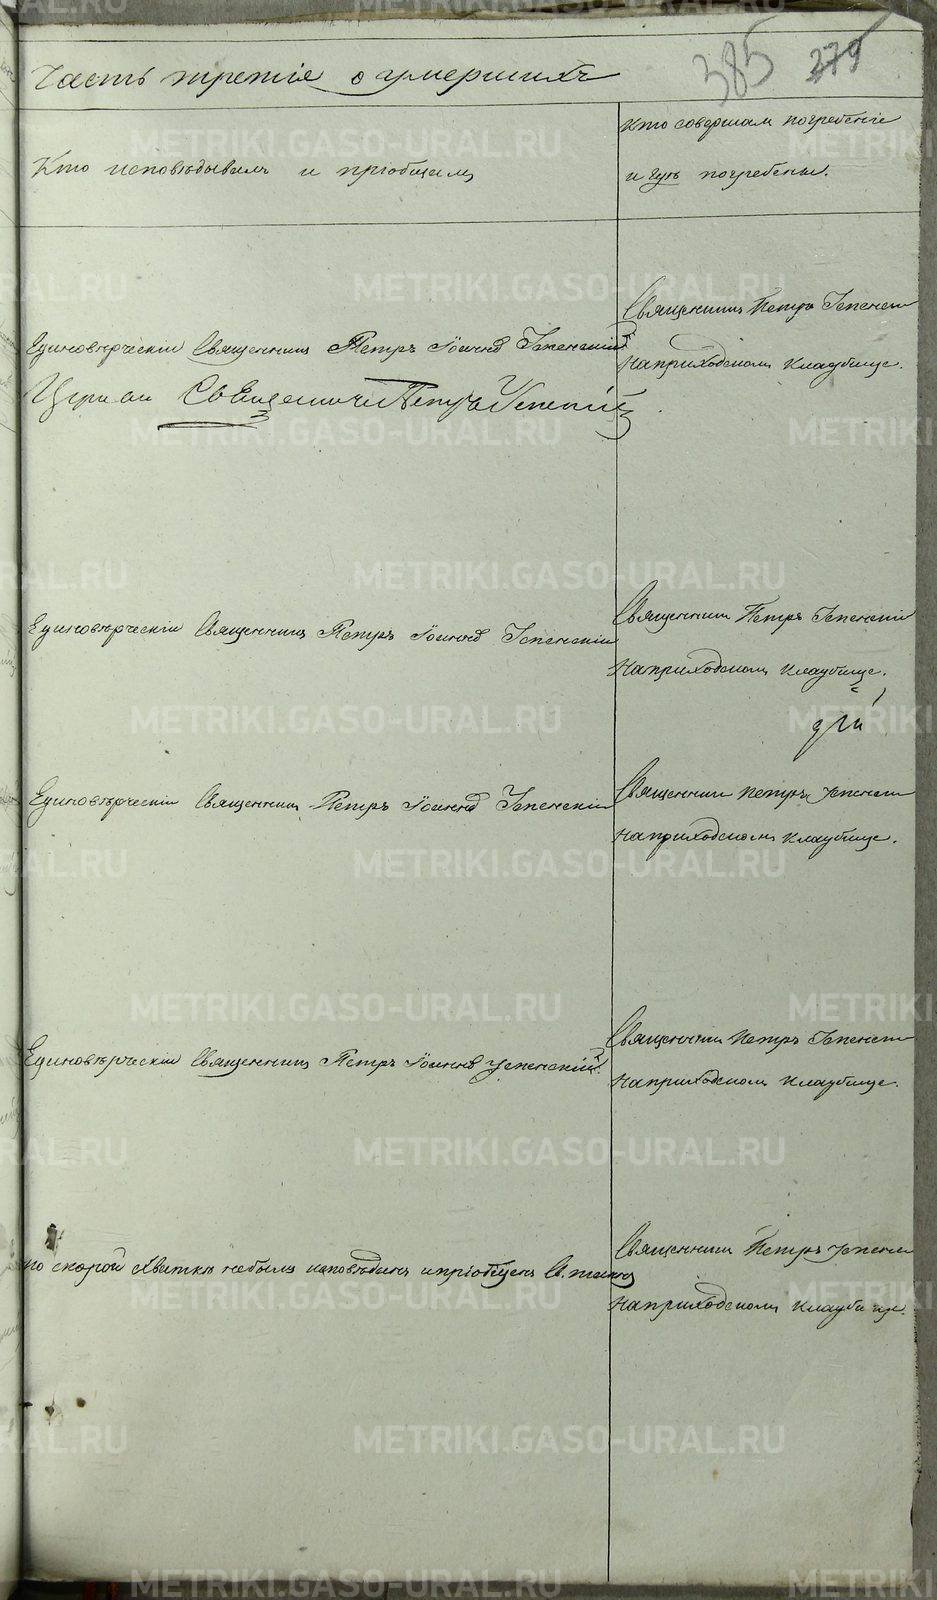 Часть третія о умершихъ
385 279
Кто исповѣдывалъ и пріобщалъ
Кто совершалъ погребеніе
и гдѣ погребены.
Единовѣрческій Священникъ Петръ Іоанновъ Успенскій
Священникъ Петръ Успенскій
на приходскомъ кладбище.
Священникъ Петръ Успенскій
Единовѣрческій Священникъ Петръ Іоанновъ Успенскій
Священникъ Петръ Успенскій
на приходскомъ кладбище.
Единовѣрческій Священникъ Петръ Іоанновъ Успенскій
Священникъ Петръ Успенскій
на приходскомъ кладбище.
Единовѣрческій Священникъ Петръ Іоанновъ Успенскій
Священникъ Петръ Успенскій
на приходскомъ кладбище.
по скорой хваткѣ небылъ исповѣданъ и пріобщенъ Св. таинъ
Священникъ Петръ Успенскій
на приходскомъ кладбище.
METRIKI.GASO-URAL.RU